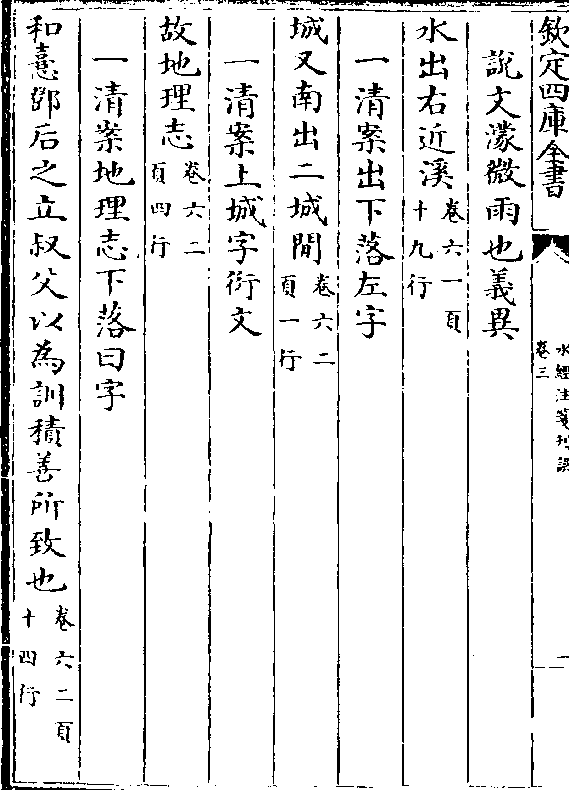 欽定四庫全書
水經注箋刊誤
卷三
一
說文濛微雨也義異
水出右近溪卷六一頁十九行
一清案出下落左字
城又南出二城間卷六二頁一行
一清案上城字衍文
故地理志卷六二頁四行
一清案地理志下落曰字
和憙鄧后之立叔父以為訓積善所致也卷六二頁十四行